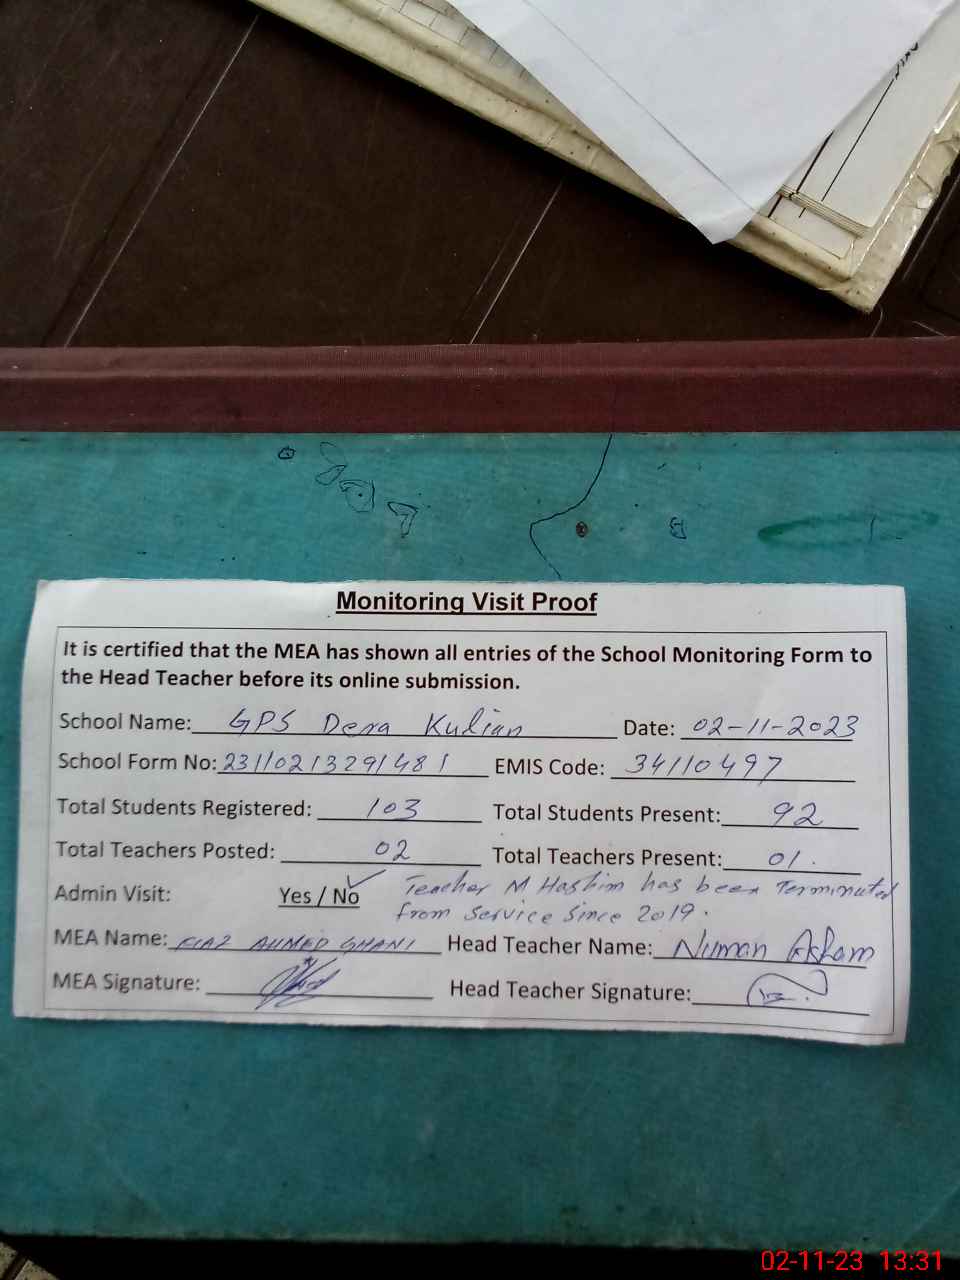 Monitoring Visit Proof
It is certified that the MEA has shown all entries of the School Monitoring Form to
the Head Teacher before its online submission.
School Name: GPS Dera Kulian Date: 02-11-2023
School Form No: 23110213291481 EMIS Code: 34110497
Total Students Registered: 103 Total Students Present: 92
Total Teachers Posted: 02 Total Teachers Present: 01.
Admin Visit: Yes / No ✓ Teacher M Hashim has been Terminated
from service since 2019.
MEA Name: FIAZ AHMED GHANI Head Teacher Name: Numan
MEA Signature: Head Teacher Signature:
02-11-23 13:31